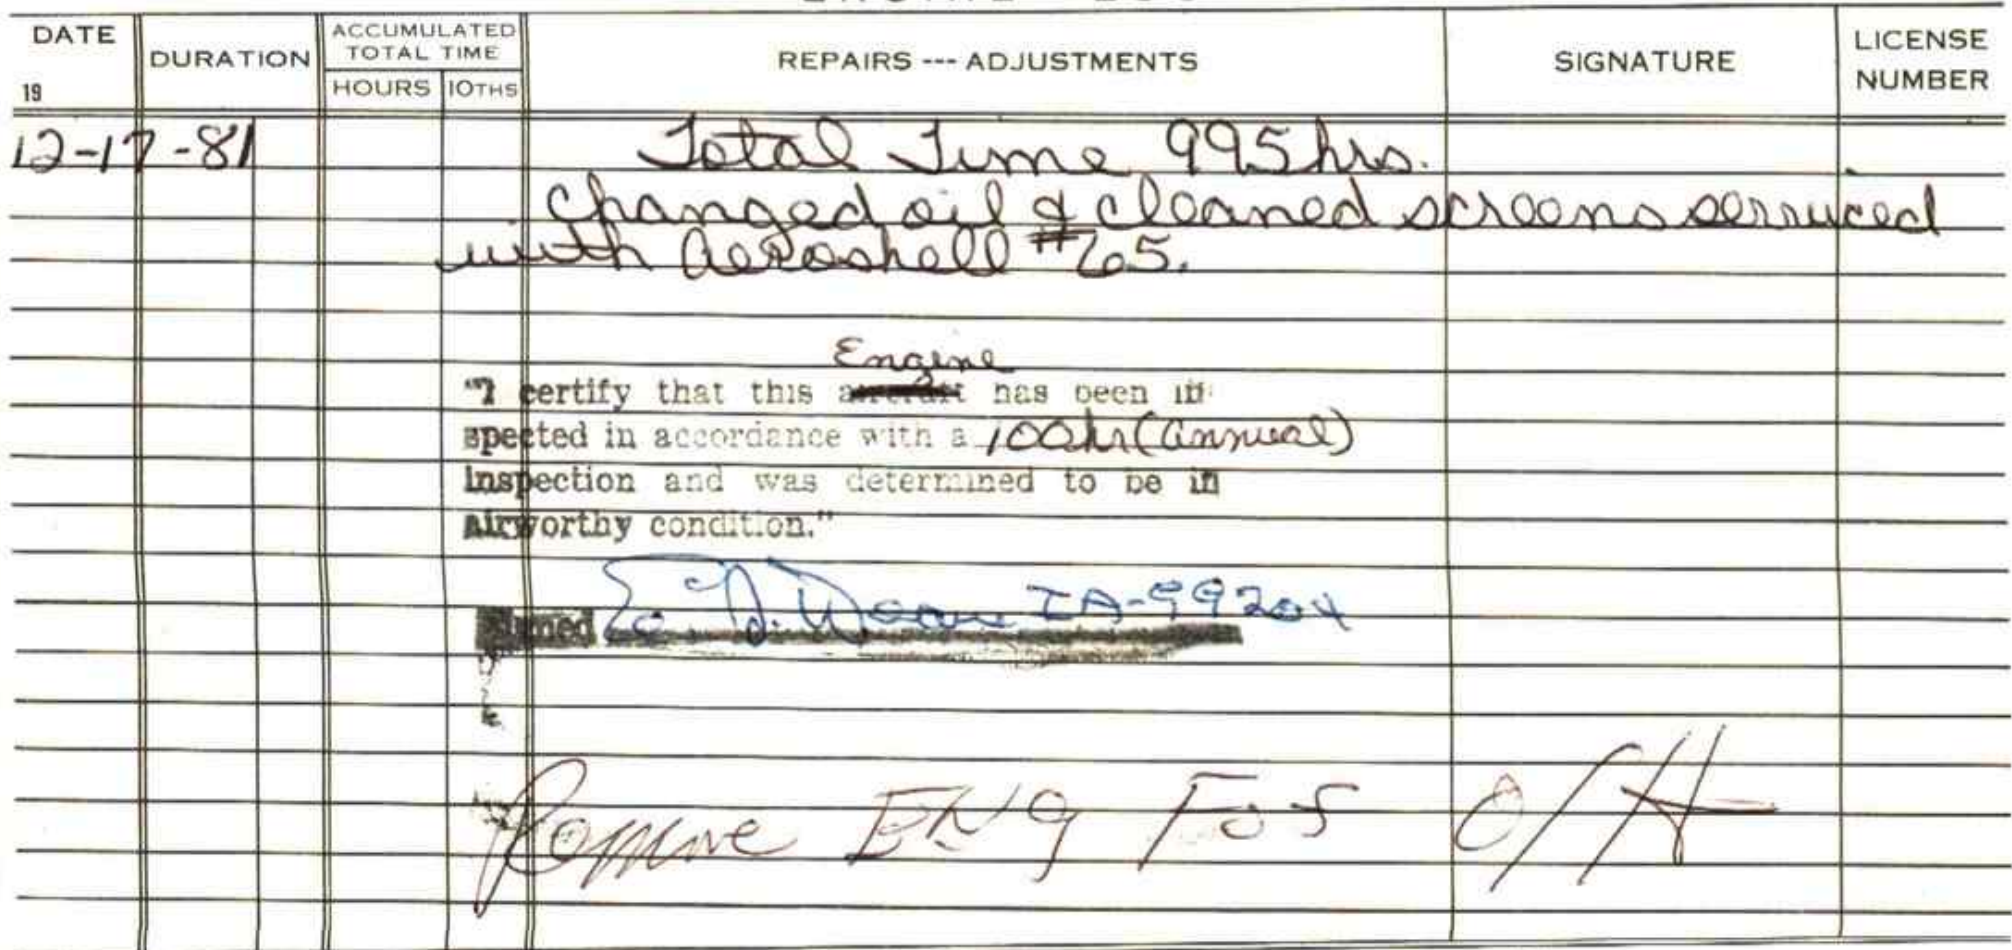 DATE DURATION ACCUMULATED TOTAL TIME REPAIRS --- ADJUSTMENTS SIGNATURE LICENSE NUMBER
19 HOURS 10THS
12-17-81 Total Time 995hrs.
Changed oil & cleaned screens serviced
with Aeroshell #65.
Engine
"I certify that this aircraft has been in
spected in accordance with a 100hr (annual)
inspection and was determined to be in
airworthy condition."
Signed IA-
Remove ENG For O/H